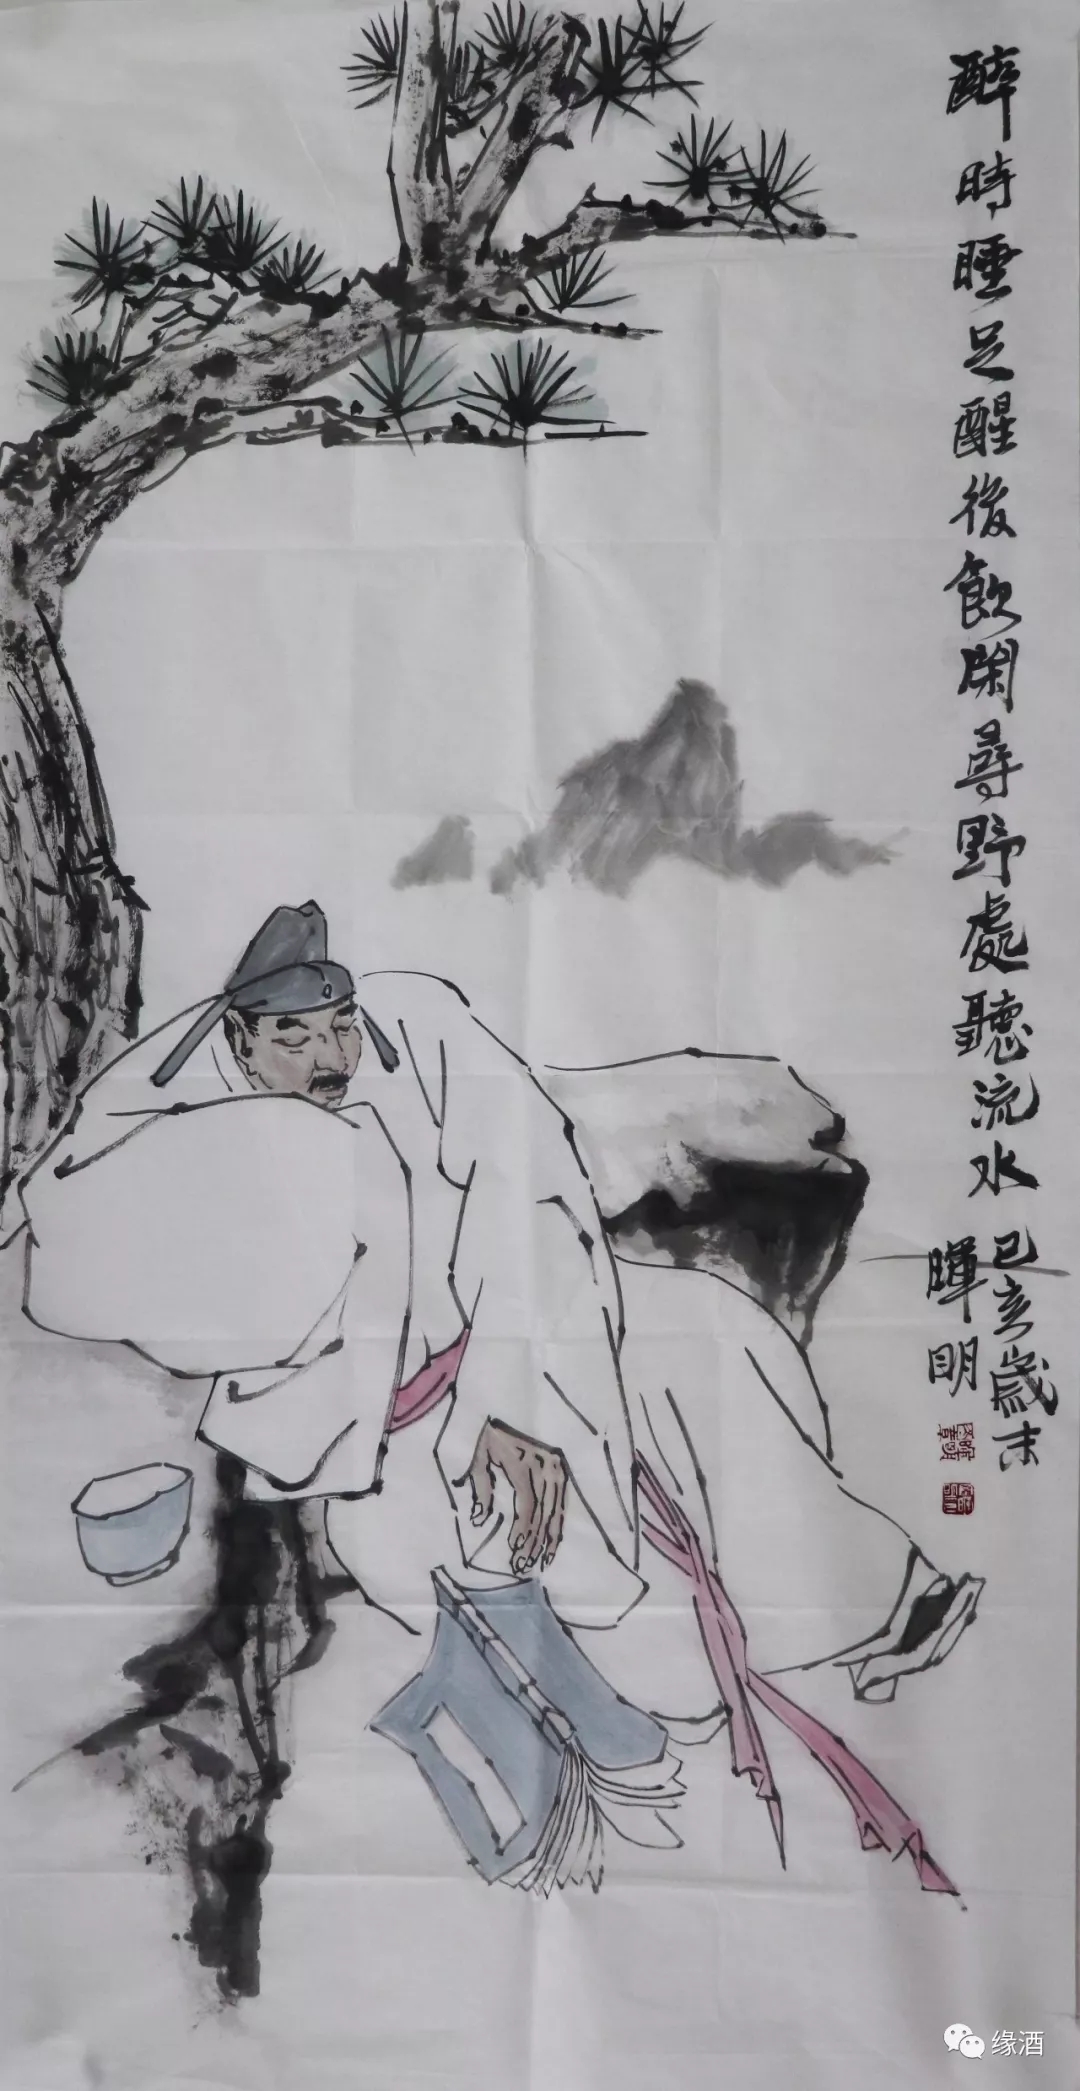 醉時睡足醒後飲閑尋野處聽流水
己亥歲末
暉明
缘酒